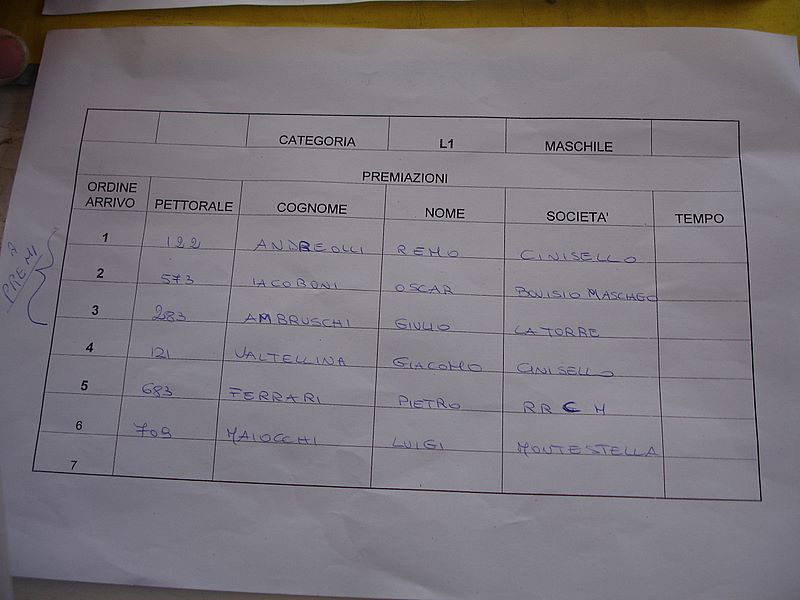 CATEGORIA L1 MASCHILE
PREMIAZIONI
ORDINE ARRIVO PETTORALE COGNOME NOME SOCIETA' TEMPO
1 122 ANDREOLLI REMO CINISELLO
2 573 IACOBONI OSCAR BOVISIO MASCHAGO
3 283 AMBRUSCHI GIULIO LA TORRE
4 121 VALTELLINA GIACOMO CINISELLO
5 683 FERRARI PIETRO RRCM
6 709 MAIOCCHI LUIGI MONTESTELLA
7
PREMI